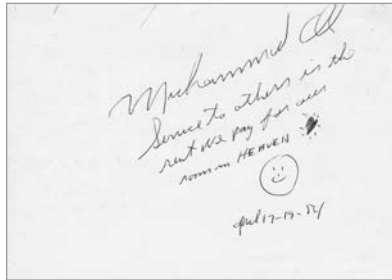 Muhammad Ali
Service to others is the
rent we pay for our
room in HEAVEN
April 17-19-